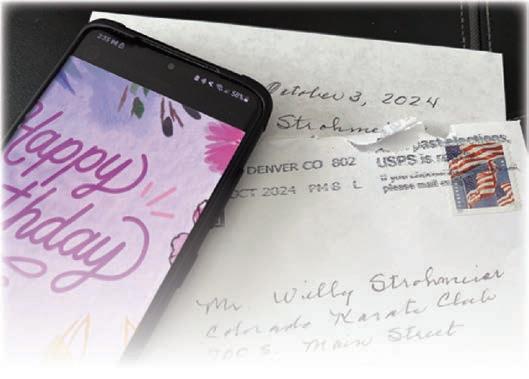 2:35 PM
58%
Happy
thday
October 3, 2024
Strohmeier
DENVER CO 802
OCT 2024 PM 8 L
past elections
USPS is
if you choose
please mail
Mr. Willy Strohmeier
Colorado Karate Club
700 S. Main Street